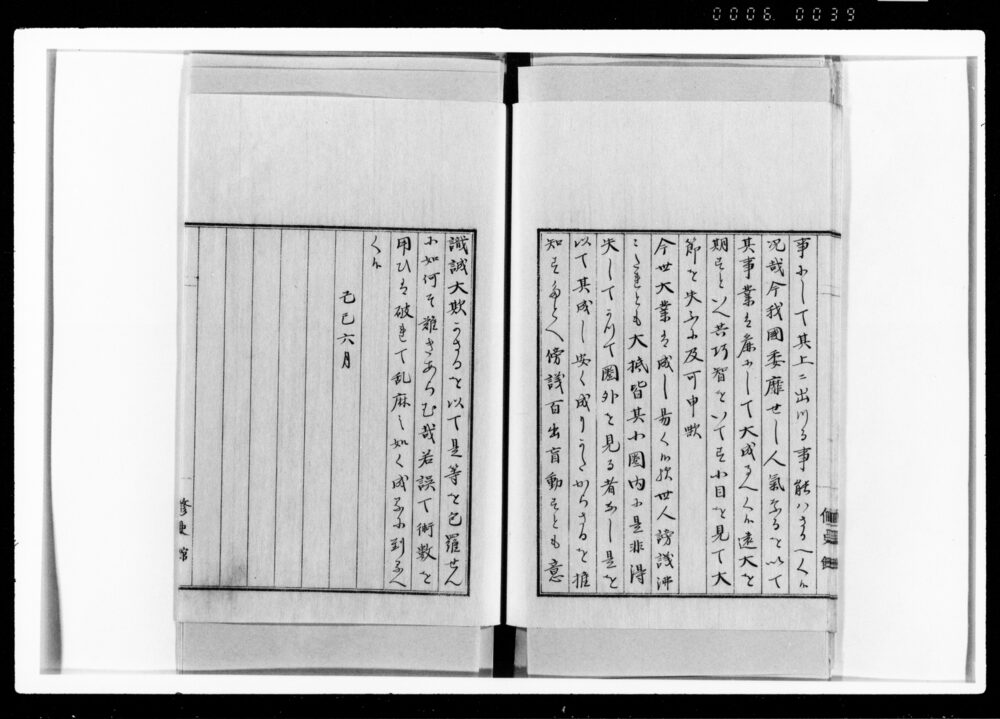 0006 0039
事ニして其上ニ出つる事能ハさるへく候
况哉今我國委靡せし人氣なるを以て
其事業は廉ニして大成すへく候遠大を
期すといへ共巧智をいて只小目を見て大
節を失ふに及可申歟
今世大業を成し易く候故世人謗議沸
これとも大抵皆其小圏内に是非得
失してかつて圏外を見る者なし是を
以て其成し安く成りかたからさるを推
知すたとへ傍議百出盲動すとも意
識誠大欺かさるを以て是等を包羅せん
に如何そ難きあらむ哉若誤て術數を
用ひは破れて乱麻之如く成るに到るへ
く候
己巳六月
修史館